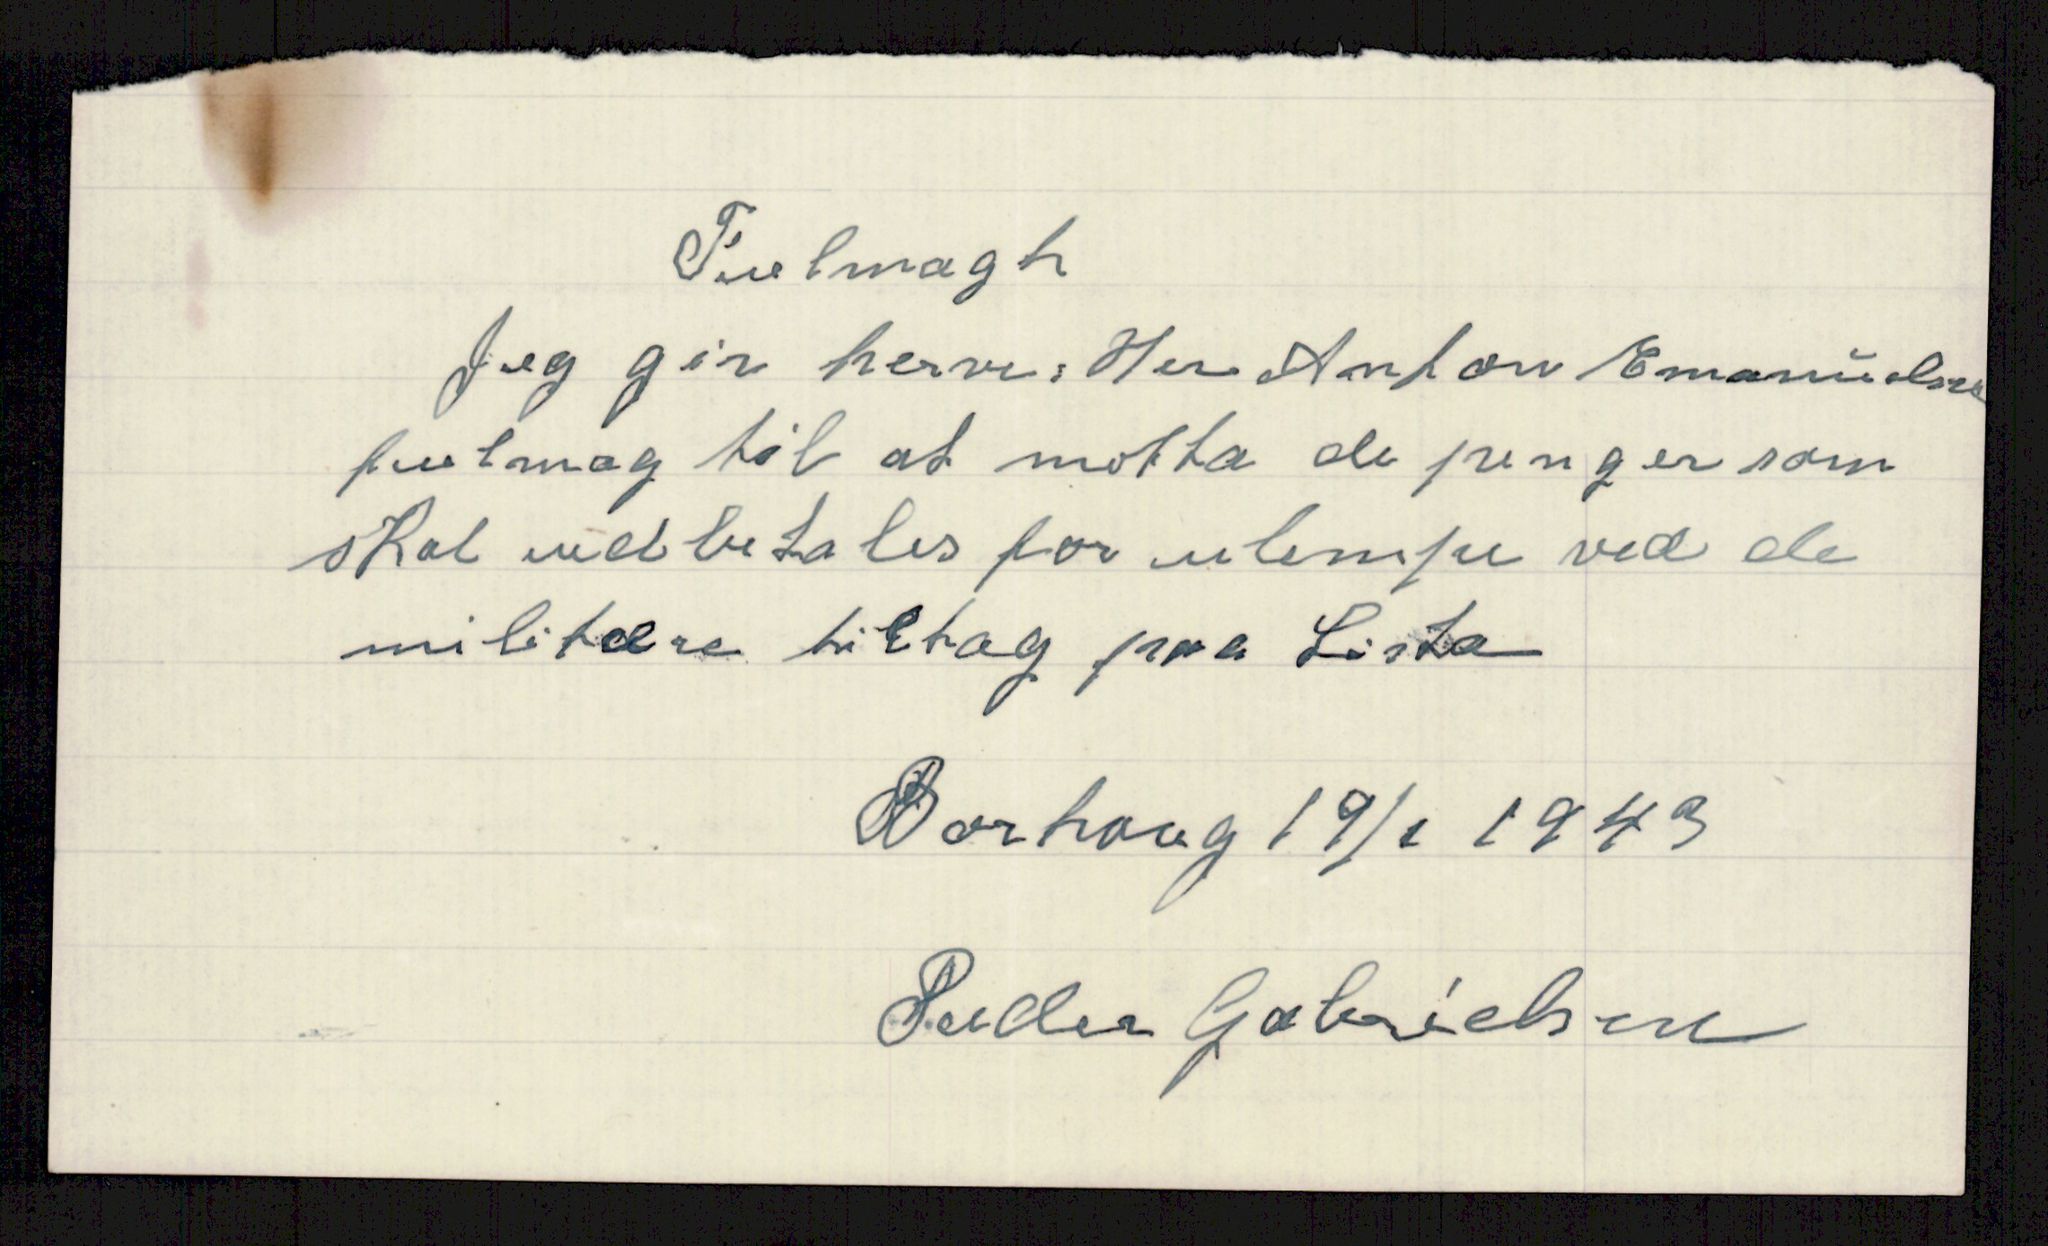 Fulmagh
Jeg gir herve: Her Anton Emanuelsen
fulmag til at motta de penger som
skal udbetales for ulempe ved de
militære tiltag paa Lista
Borhaug 19/1 1943
Peder Gabrielsen